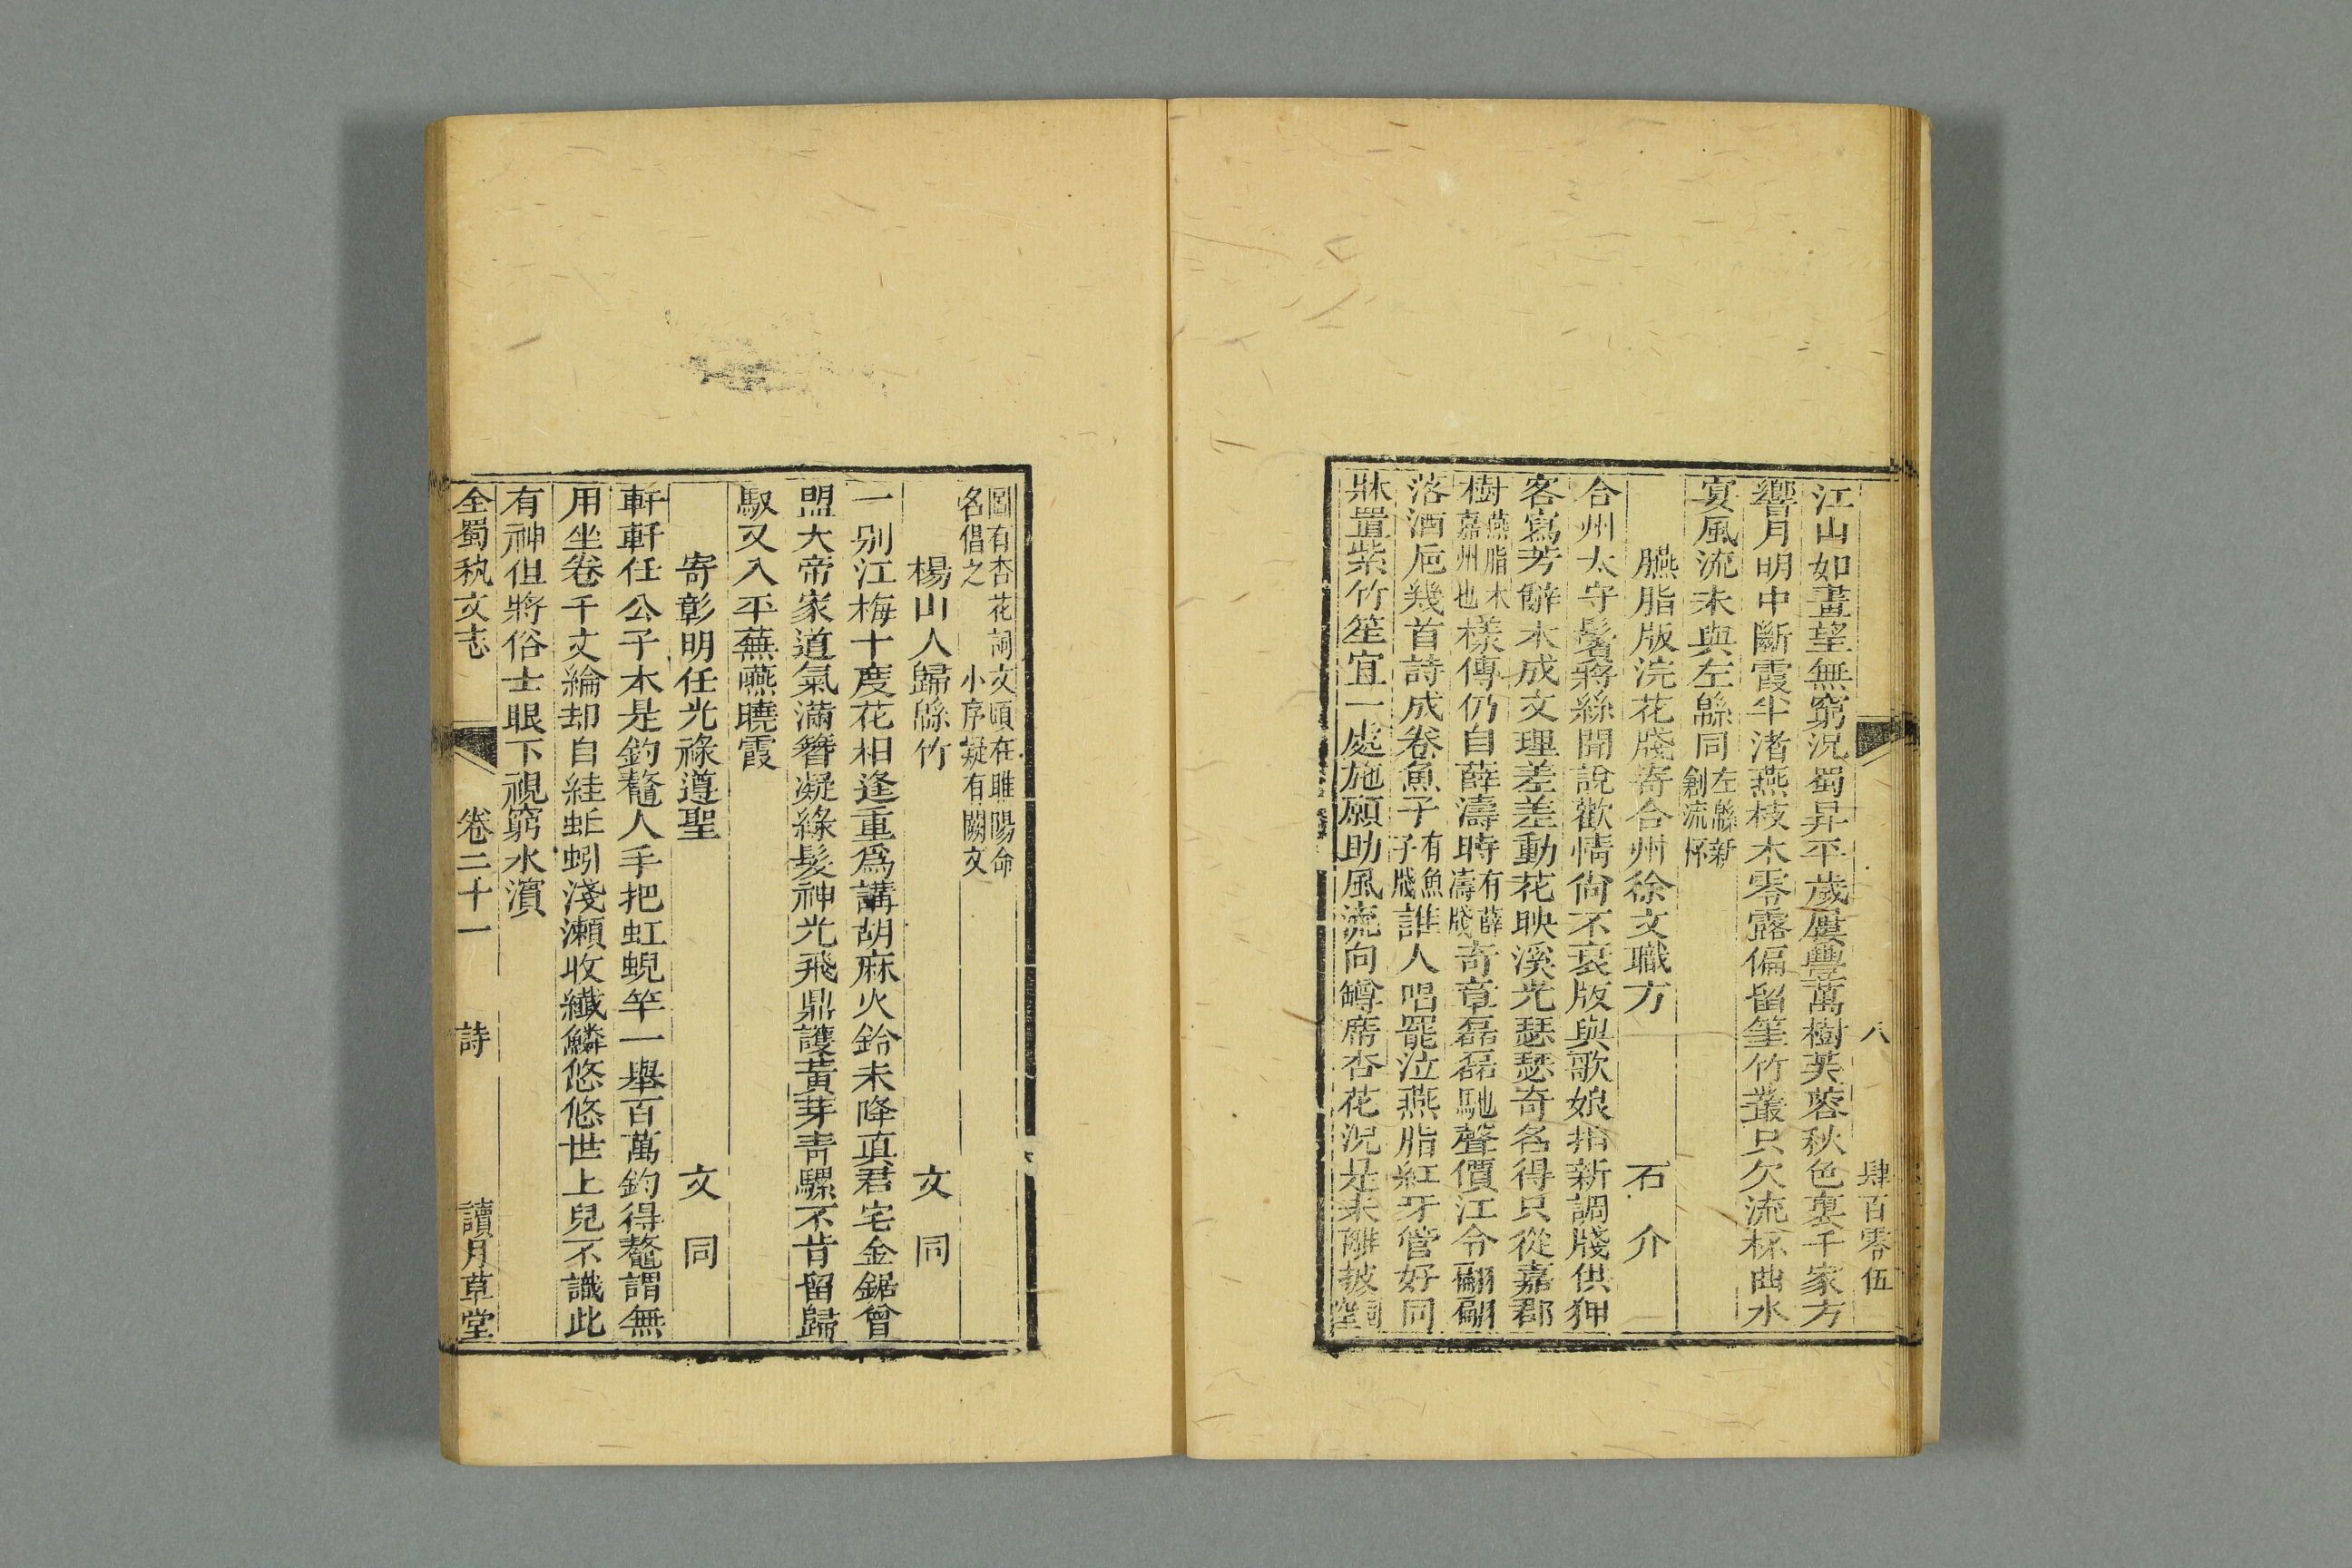 八 肆百零伍
江山如畫望無窮況蜀昇平歲屢豐萬樹芙蓉秋色裏千家方
響月明中斷霞半渚燕枝木零露偏留筀竹叢只欠流杯曲水
宴風流未與左緜同左緜新
創流杯
臙脂版浣花牋寄合州徐文職方 石介
合州太守鬢將絲聞說歡情尙不衰版與歌娘拍新調牋供狎
客寫芳辭木成文理差差動花映溪光瑟瑟奇名得只從嘉郡
樹燕脂木
嘉州也樣傳仍自薛濤時有薛
濤牋奇章磊磊馳聲價江令翩翩
落酒巵幾首詩成卷魚子有魚
子牋誰人唱罷泣燕脂紅牙管好同
牀置紫竹笙宜一處施願助風流向罇席杏花況是未離披
圖有杏花詞文頭在睢陽命
名倡之 小序疑有闕文
楊山人歸緜竹 文同
一别江梅十度花相逢重爲講胡麻火鈴未降真君宅金鋸曾
盟大帝家道氣滿簪凝綠髮神光飛鼎護黃芽靑騾不肯留歸
馭又入平蕪嚥曉霞
寄彰明任光祿遵聖 文同
軒軒任公子本是釣鼇人手把虹蜺竿一舉百萬鈞得鼇謂無
用坐卷千丈綸却自絓蚯蚓淺瀨收纖鱗悠悠世上兒不識此
有神但將俗士眼下視窮水濱
全蜀秇文志 卷二十一 詩 讀月草堂